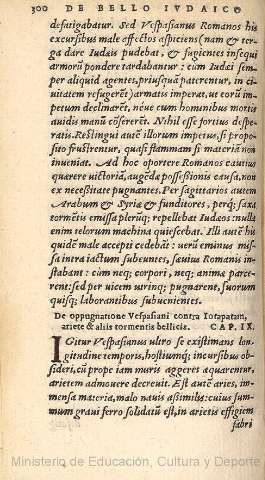 300 DE BELLO IVDAICO
defatigabatur. Sed Vespasianus Romanos his
excursibus male affectos aspiciens (nam & ter-
ga dare Iudæis pudebat, & fugientes insequi
armorū pondere tardabantur: cùm Iudæi sem-
per aliquid agentes, priusquā paterentur, in ci-
uitatem refugerēt) armatis imperat, ut eorū im-
petum declinarēt, néue cum hominibus mortis
auidis manū cōsererēt. Nihil esse fortius despe-
ratis. Restingui autē illorum impetus, si propo-
sito frustrentur, quasi flammam si materia non
inueniat. Ad hoc oportere Romanos cautius
quærere uictoriā, augēda possessionis causa, non
ex necessitate pugnantes. Per sagittarios autem
Arabum & Syriæ & funditores, perq́; saxa
tormētis emissa plerūq; repellebat Iudæos: nulla
enim telorum machina quiescebat. Illi autē his
quidē male accepti cedebāt: uerū eminus missa
intra iactum subeuntes, sæuius Romanis in-
stabant: cùm neq; corpori, neq; animæ parce-
rent: sed per uicem utrinq; pugnarent, suorum
quisq; laborantibus subuenientes.
De oppugnatione Vespasiani contra Iotapatam,
ariete & aliis tormentis bellicis. CAP. IX.
IGitur Vespasianus ultro se existimans lon-
gitudine temporis, hostiumq; incursibus ob-
sideri, cū prope iam muris aggeres æquarentur,
arietem admouere decreuit. Est autē aries, im-
mensa materia, malo nauis assimilis: cuius sum-
mum graui ferro solidatū est, in arietis effigiem
fabri
Ministerio de Educación, Cultura y Deporte